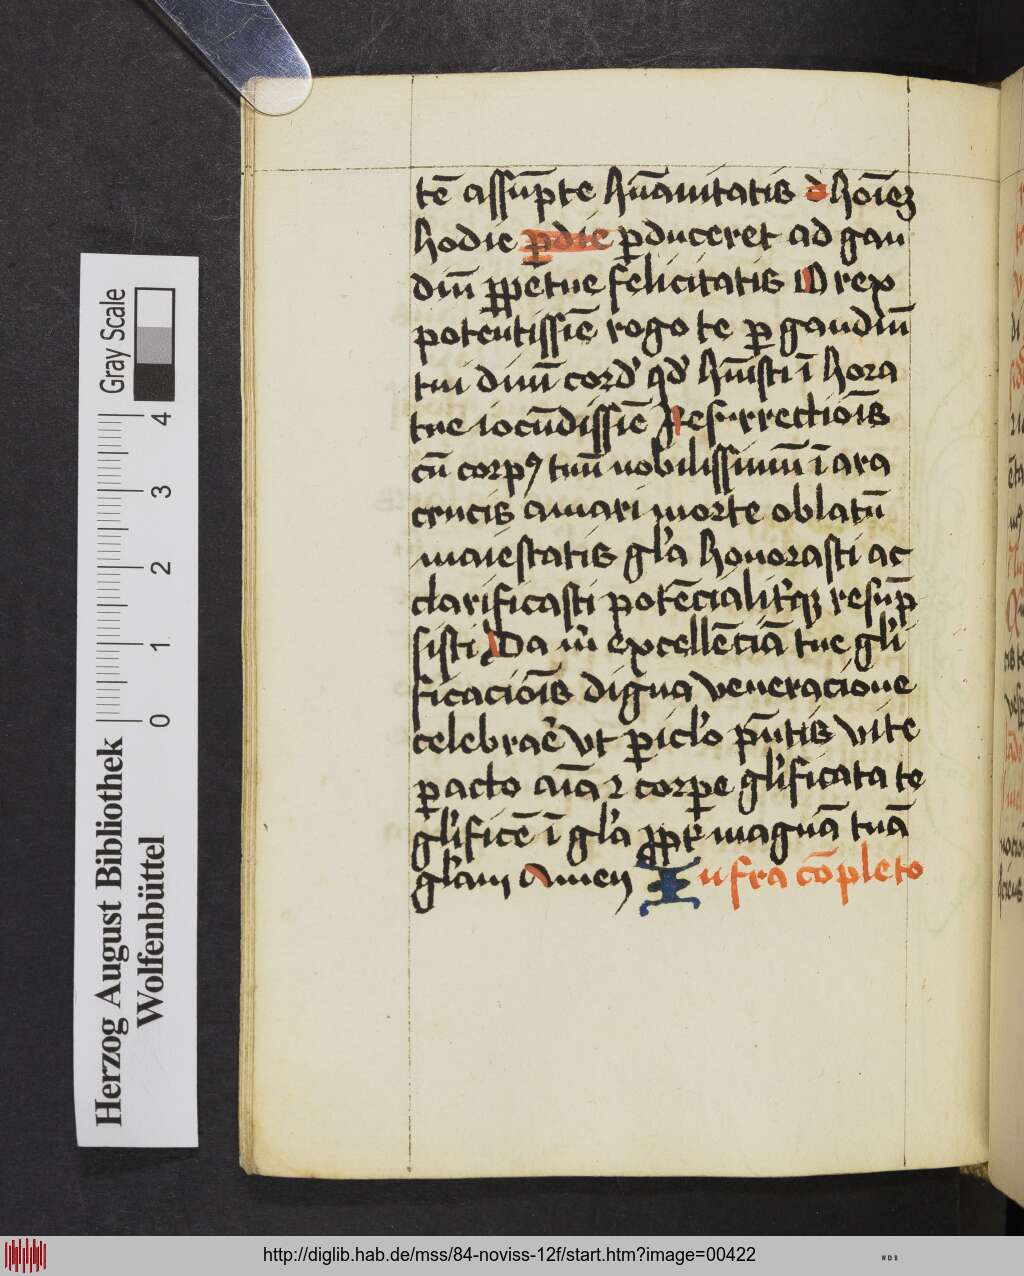 tē assūpte hūanitatis d hoīeꝫ
hodie ꝑdie ꝑduceret ad gau
diū ꝑpetue felicitatis O rex
potentissīe rogo te ꝑ gaudiū
tui diuī cord' qd' hūisti ī hora
tue iocūdissīe Resurrectiōis
cū corpꝰ tuū nobilissimū ī ara
crucis amari morte oblatū
maiestatis gl'a honorasti ac
clarificasti potēcialit'qꝫ resūp
sisti Da m̄ excellēciā tue gl'i
ficaciōis digna veneracione
celebrae' vt ꝑicl'o p̄ntis vite
ꝑacto aīa ⁊ corꝑe gl'ificata te
gl'ificē ī gl'a ꝓpt' magnā tuā
gl'am Amen Infra cōpleto
Herzog August Bibliothek
Wolfenbüttel
0 1 2 3 4
Gray Scale
http://diglib.hab.de/mss/84-noviss-12f/start.htm?image=00422